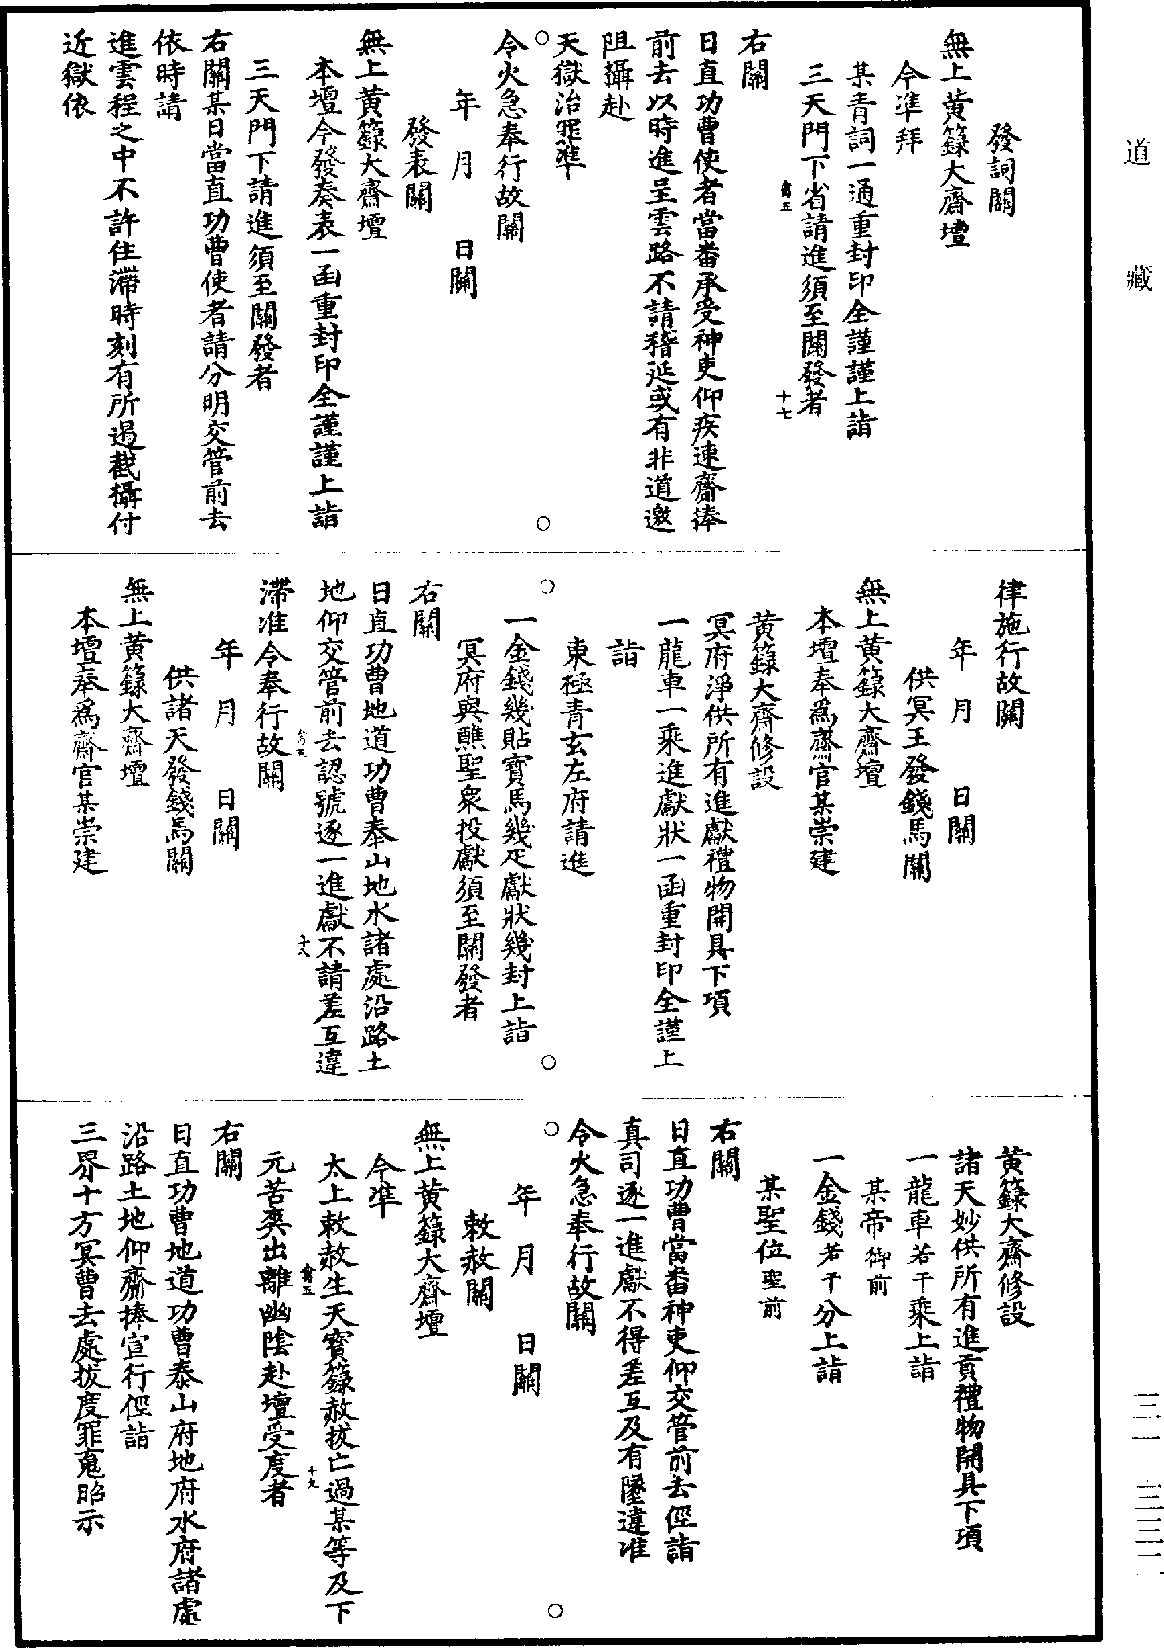 道藏
發詞關
無上黃籙大齋壇
今準拜
某青詞一通重封印全謹謹上詣
三天門下省請進須至關發者
十七
右關
日直功曹使者當畨承受神吏仰疾速齎捧
前去以時進呈雲路不請稽延或有非道邀
阻攝赴
天獄治罪準
令火急奉行故關
年月日關
發表關
無上黃籙大齋壇
本壇今發奏表一函重封印全謹謹上詣
三天門下請進須至關發者
右關某日當直功曹使者請分明交管前去
依時請
進雲程之中不許住滯時刻有所遏截攝付
近獄依
律施行故關
年月日關
供冥王發錢馬關
無上黃籙大齋壇
本壇奉爲齋官某崇建
黃籙大齋修設
冥府淨供所有進獻禮物開具下項
一龍車一乘進獻狀一函重封印全謹上
詣
東極青玄左府請進
一金錢幾貼寶馬幾疋獻狀幾封上詣
冥府與醮聖衆投獻須至關發者
右關
日直功曹地道功曹奉山地水諸處沿路土
地仰交管前去認號逐一進獻不請差互違
十八
滯准令奉行故關
年月日關
供諸天發錢馬關
無上黃籙大齋壇
本壇奉爲齋官某崇建
黃籙大齋修設
諸天妙供所有進貢禮物開具下項
一龍車若干乘上詣
某帝御前
一金錢若干分上詣
某聖位聖前
右關
日直功曹當畨神吏仰交管前去徑詣
真司逐一進獻不得差互及有墜違准
令火急奉行故關
年月日關
敕赦關
無上黃籙大齋壇
今準
太上敕赦生天寶籙赦拔亡過某等及下
十九
元苦爽出離幽陰赴壇受度者
右關
日直功曹地道功曹泰山府地府水府諸處
沿路土地仰齎捧宣行徑詣
三界十方冥曹去處拔度罪魂昭示
三一
三三二